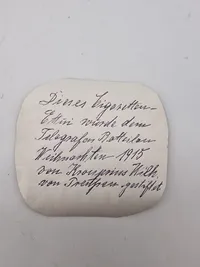 Dieses Cigaretten-
Etui wurde dem
Telegrafen
Weihnachten 1915
von Kronprinz Wilh.
von Preußen gestiftet